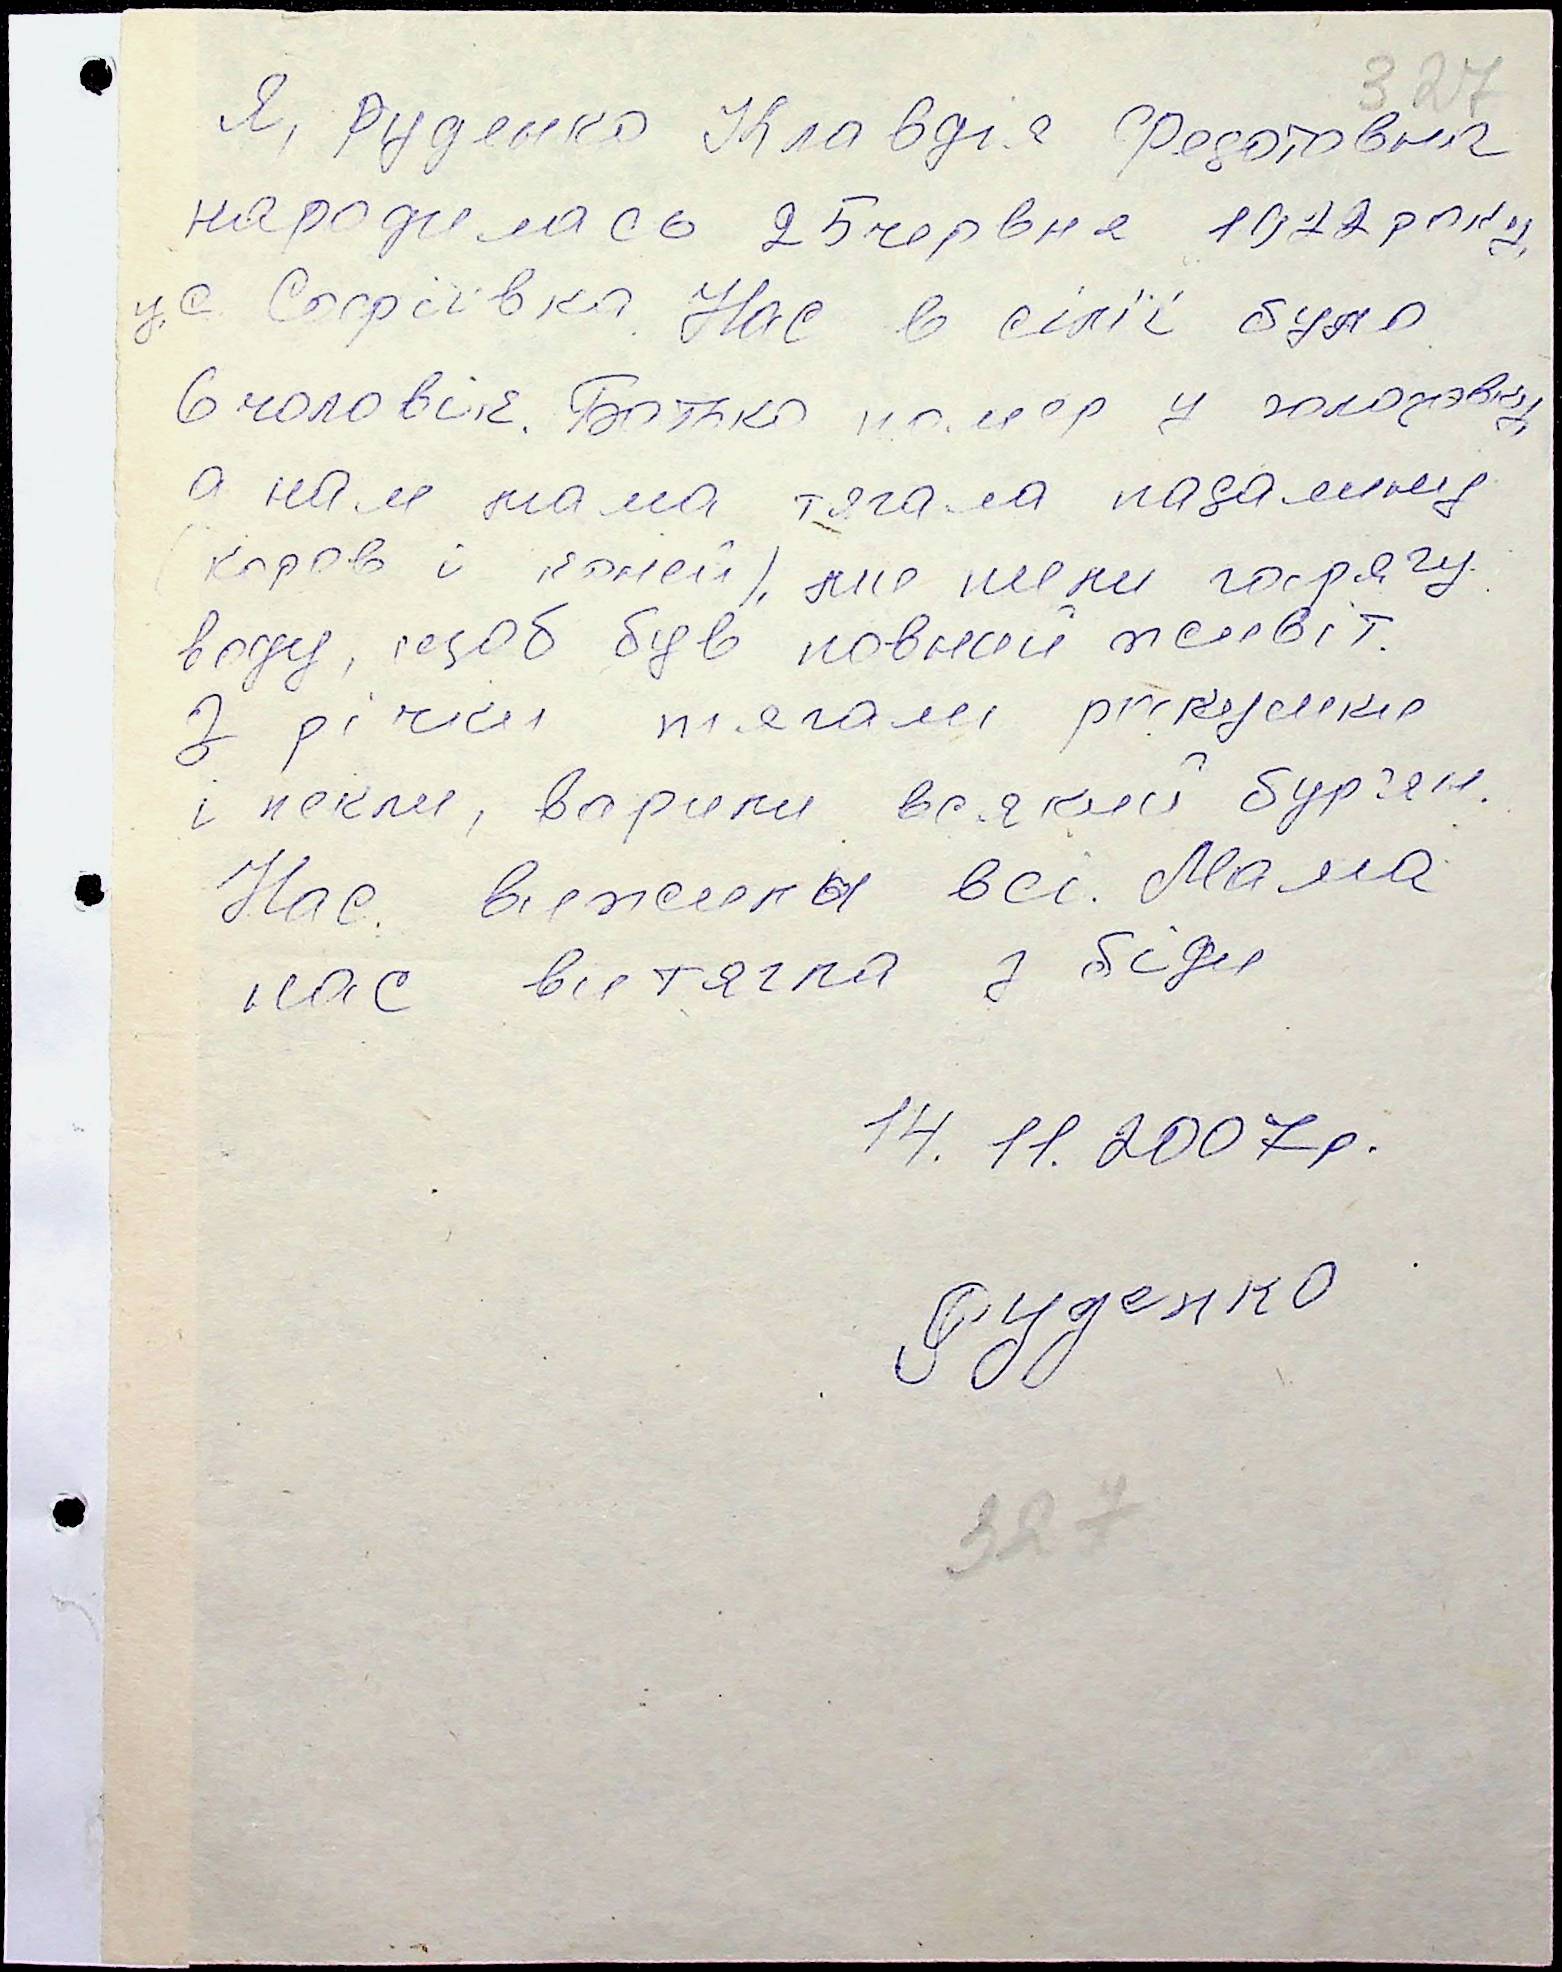 327
Я, Руденко Клавдія Федотовна
народилась 25 червня 1922 року,
у с Софіївка. Нас в сім'ї було
6 чоловік. Батько помер у голодовку,
а нам мама тягала падалину
(коров і коней), ми пили гарячу
воду, щоб був повний живіт.
З річки тягали ракушки
і пекли, варили всякий бур'ян.
Нас вижили всі. Мама
нас витягла з біди
14. 11. 2007 р.
Руденко
327